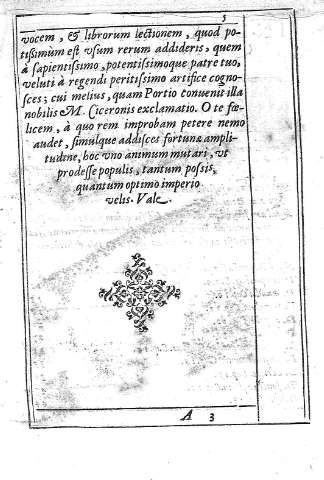 5
vocem, & librorum lectionem, quod po-
tißimum est vſum rerum addideris, quem
à ſapientiſsimo, potentiſsimoque patre tuo,
veluti à regendi peritiſsimo artifice cogno-
ſces; cui melius, quam Portio conuenit illa
nobilis M. Ciceronis exclamatio. O te fœ-
licem, à quo rem improbam petere nemo
audet, ſimulque addiſces fortunæ ampli-
tudine, hoc vno animum mutari, vt
prodeſſe populis, tantum poſsis,
quantum optimo imperio
velis. Vale.
A 3